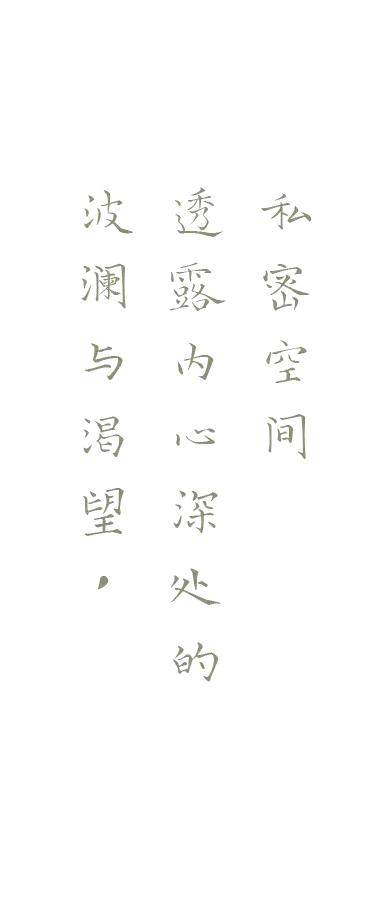 私密空间
透露内心深处的
波澜与渴望，